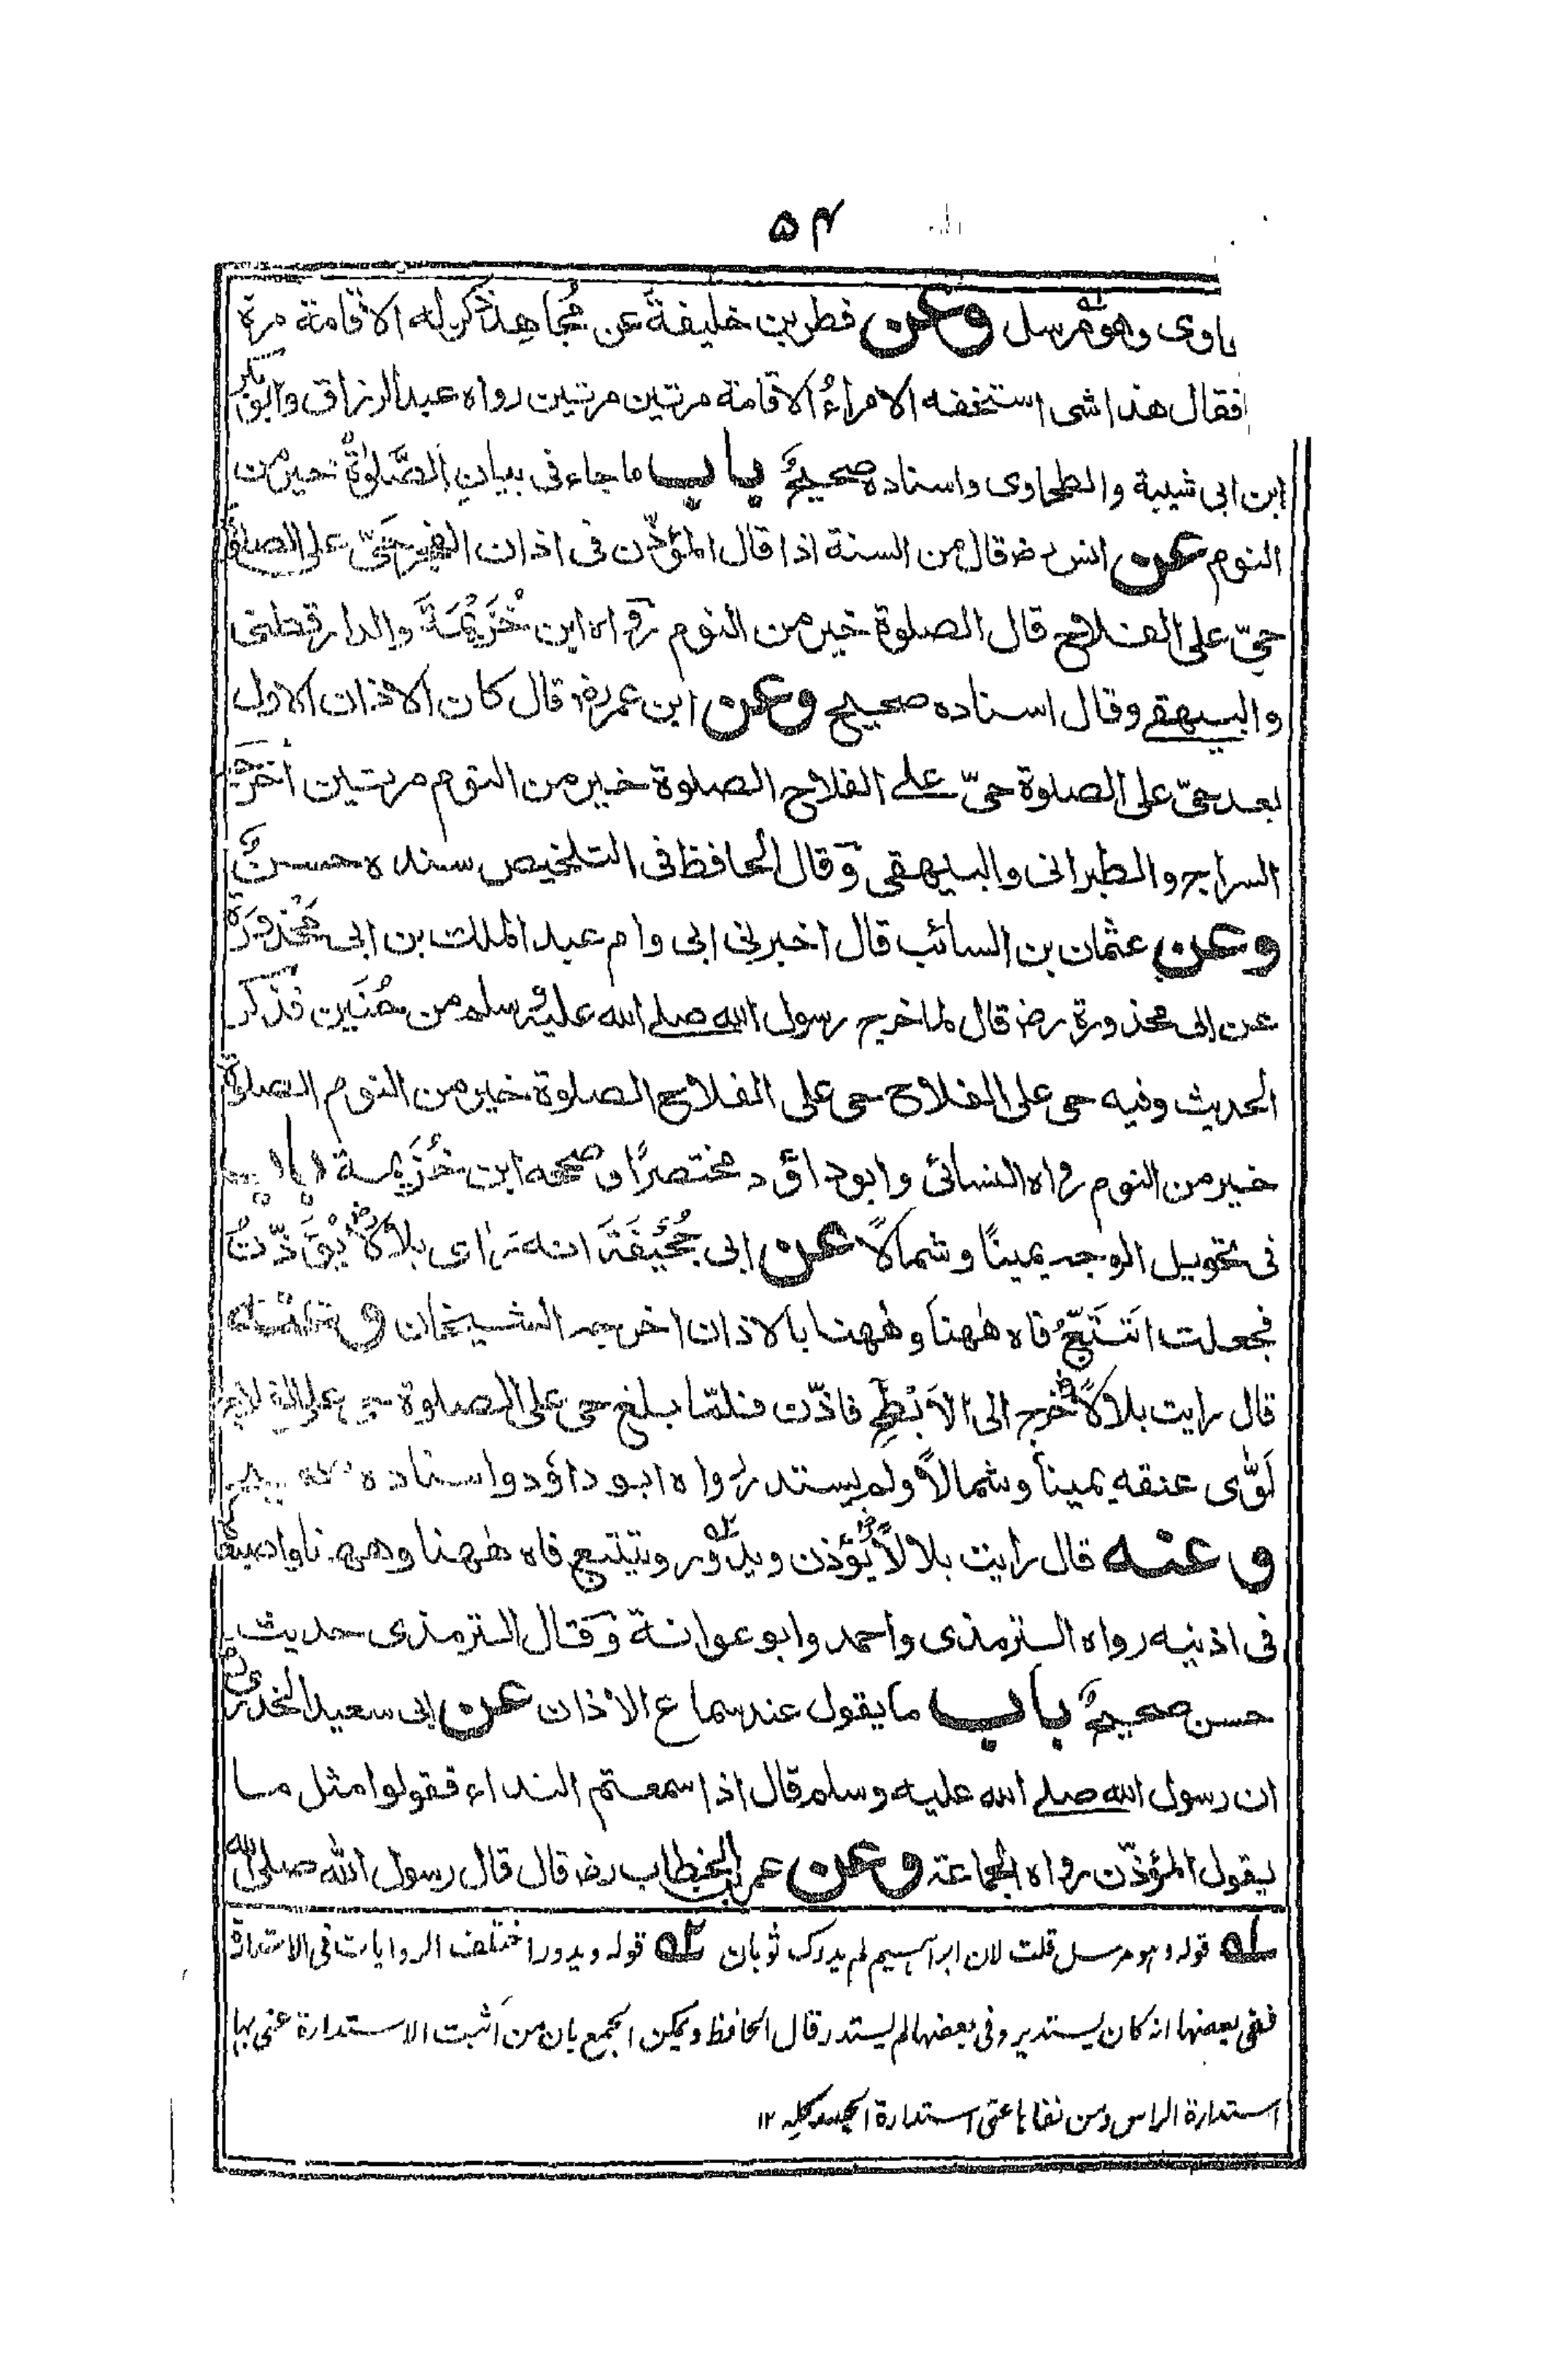 ۵۴
اوى وهو مرسل وعن فطر بن خليفة عن مجاهد ذكر له الاقامة مرة
فقال هذا شى استخففه الامراءُ الاقامة مرتين مرتين رواه عبد الرزاق وابوبكر
ابن ابى شيبة والطحاوى واسناده صحيحٌ باب ما جاء فى بيانِ الصَّلوٰةُ خير من
النوم عن انس رض قال من السنة اذا قال المؤذّن فى اذان الفجر حَىّ على الصلوة
حىّ على الفلاح قال الصلوة خير من النوم رواه ابن خُزَيْمَةَ والدارقطنى
والبيهقے وقال اسناده صحيح وعن ابن عمر رض قال كان الاذان الاول
بعد حىّ على الصلوة حىّ علے الفلاح الصلوة خير من النوم مرتين اخرجه
السراج والطبرانى والبيهقى وقال الحافظ فى التلخيص سنده حسنٌ
وعن عثمان بن السائب قال اخبرنى ابى وام عبد الملك بن ابى مَحْذُورَة
عن ابى محذورة رض قال لما خرج رسول الله صلے الله عليه وسلم من حُنَين فذكر
الحديث وفيه حى على الفلاح حى على الفلاح الصلوة خير من النوم الصلوة
خير من النوم رواه النسائى وابو داؤد مختصرًا وصححه ابن خُزَيمة باب
فى تحويل الوجه يمينًا وشمالًا عن ابى جُحَيْفَةَ انه راى بلالًا رض يُؤَذّنُ
فجعلت اَتَتَبَّعُ فاه هٰهنا وهٰهنا بالاذان اخرجه الشيخان وعنه
قال رايت بلالًا رض خرج الى الاَبْطَحِ فاذّن فلمّا بلغ حى على الصلوة حى على الفلاح
لَوّٰى عنقه يمينًا وشمالًا ولم يستدر رواه ابو داؤد واسناده صحيح
وعنه قال رايت بلالًا رض يُؤذن ويدور ٢ه ويتتبع فاه هٰهنا وههنا واصبعاه
فى اذنيه رواه الترمذى واحمد وابو عوانة وقال الترمذى حديث
حسن صحيحٌ باب ما يقول عند سماع الاذان عن ابى سعيد الخدرى رض
ان رسول الله صلے الله عليه وسلم قال اذا سمعتم النداء فقولوا مثل ما
يقول المؤذّن رواه الجماعة وعن عمر بن الخطاب رض قال قال رسول الله صلى الله
١ه قوله وهو مرسل قلت لان ابراهيم لم يدرك ثوبان ٢ه قوله ويدور اختلف الروايات فى الاستدارة
ففى بعضها انه كان يستدير وفى بعضها لم يستدر قال الحافظ ويمكن الجمع بان من اَثبت الاستدارة عنى بها
استدارة الراس ومن نفاها عنى استدارة الجسد كله ١٢